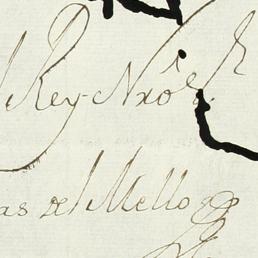 l Rey Nrõ Sr.
as del Mello